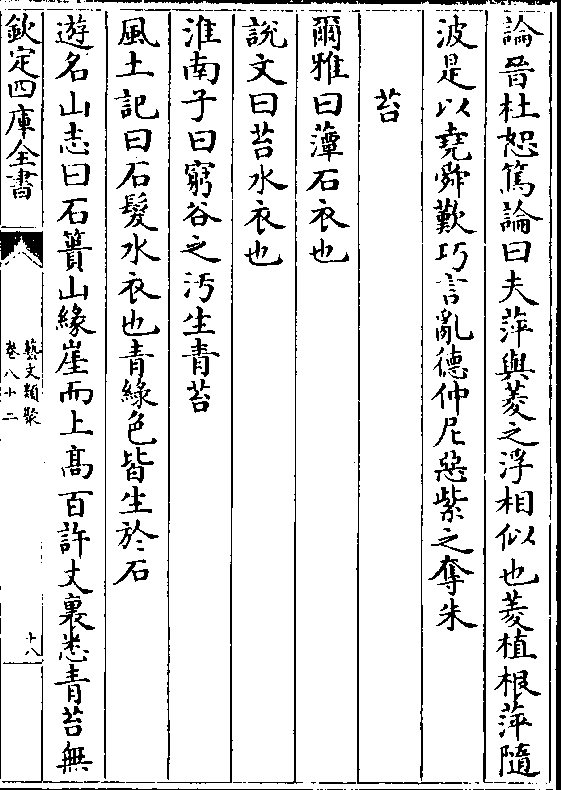 論晉杜恕篤論曰夫萍與菱之浮相似也菱植根萍隨
波是以堯舜歎巧言亂德仲尼惡紫之奪朱
苔
爾雅曰藫石衣也
說文曰苔水衣也
淮南子曰窮谷之汚生青苔
風土記曰石髮水衣也青綠色皆生於石
遊名山志曰石簣山緣崖而上髙百許丈裏悉青苔無
欽定四庫全書
藝文類聚
卷八十二
十八